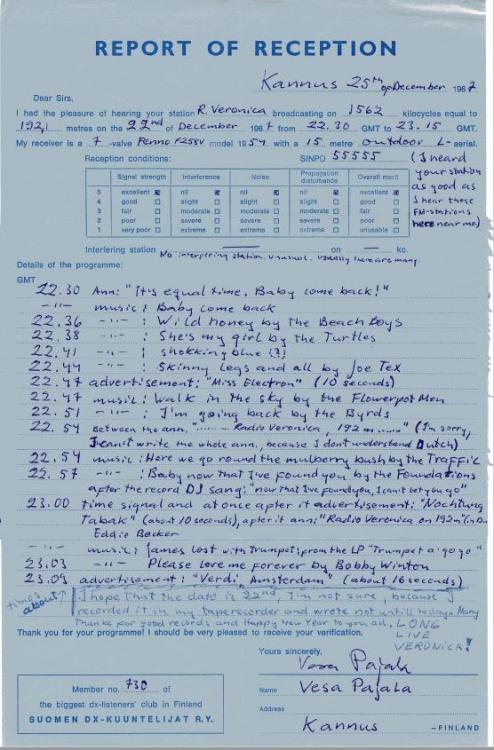 REPORT OF RECEPTION
Kannus 25th of December 1967
Dear Sirs,
I had the pleasure of hearing your station R. Veronica broadcasting on 1562 kilocycles equal to
192,1 metres on the 22nd of December 1967 from 22.30 GMT to 23.15 GMT.
My receiver is a 7 -valve Penno F255V model 1954 with a 15 metre outdoor L- aerial.
Reception conditions: SINPO 55555 (I heard
your station
as good as
I hear these
FM-stations
here near me)
Signal strength Interference Noise Propagation disturbance Overall merit
5 excellent nil nil nil excellent
4 good slight slight slight good
3 fair moderate moderate moderate fair
2 poor severe severe severe poor
1 very poor extreme extreme extreme unusable
Interfering station — on — kc.
No interfering station. unusual. usually there are many.
Details of the programme:
GMT
22.30 Ann: "It's equal time. Baby come back!"
-"- music: Baby come back
22.36 -"- : Wild honey by the Beach Boys
22.38 -"- : She's my girl by the Turtles
22.41 -"- : shokking blue (?)
22.44 -"- : Skinny legs and all by Joe Tex
22.47 advertisement: "Miss Electron" (10 seconds)
22.47 music: Walk in the sky by the Flowerpot Men
22.51 -"- : I'm going back by the Byrds
22.54 Between the ann. "...... Radio Veronica, 192 m ......" (I'm sorry,
I can't write the whole ann., because I dont understand Dutch)
22.54 music: Here we go round the mulberry bush by the Traffic
22.57 -"- : Baby now that I've found you by the Foundations
after the record DJ sang: "now that I've found you, I can't let you go"
23.00 time signal and at once after it advertisement: "Nochtiung
Tabak" (about 10 seconds), after it ann: "Radio Veronica on 192 m" (in Du
Eddie Becker
-"- music: James Lost with Trumpet; from the LP "Trumpet a' go go"
23.03 -"- Please love me forever by Bobby Winton
23.09 advertisement: "Verdi, Amsterdam" (about 16 seconds)
times about!
I hope that the date is 22nd, I'm not sure, because I
recorded it in my taperecorder and wrote not untill today. Many
Thanks for good records and Happy New Year to you all. LONG
LIVE
VERONICA!
Thank you for your programme! I should be very pleased to receive your verification.
Yours sincerely,
Vesa Pajala
Name Vesa Pajala
Address
Kannus —FINLAND
Member no. 730 of
the biggest dx-listeners' club in Finland
SUOMEN DX-KUUNTELIJAT R.Y.